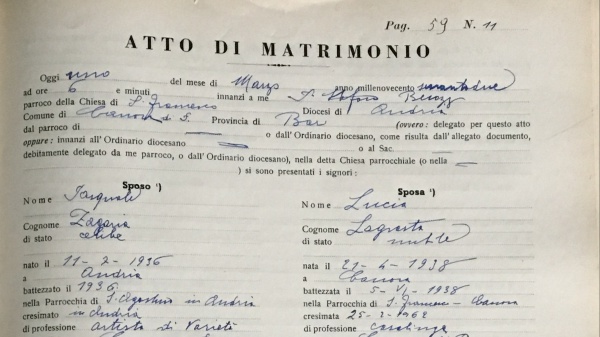 Pag. 59 N. 11
ATTO DI MATRIMONIO
Oggi uno del mese di Marzo anno millenovecento
ad ore 6 e minuti innanzi a me
parroco della Chiesa di S. Francesco Diocesi di Andria
Comune di Canosa di Provincia di Bari (ovvero: delegato per questo atto
dal parroco di o dall'Ordinario diocesano, come risulta dall'allegato documento,
oppure: innanzi all'Ordinario diocesano o al Sac.
debitamente delegato da me parroco, o dall'Ordinario diocesano), nella detta Chiesa parrocchiale (o nella
) si sono presentati i signori:
Sposo ¹)
Nome Pasquale
Cognome Zagaria
di stato celibe
nato il 11-2-1936
a Andria
battezzato il 1936
nella Parrocchia di S. Agostino in Andria
cresimato in Andria
di professione artista di Varietà
Sposa ¹)
Nome Lucia
Cognome Lagrasta
di stato nubile
nata il 21-4-1938
a Canosa
battezzata il 5-VI-1938
nella Parrocchia di S. Francesco - Canosa
cresimata 25-2-1962
di professione casalinga